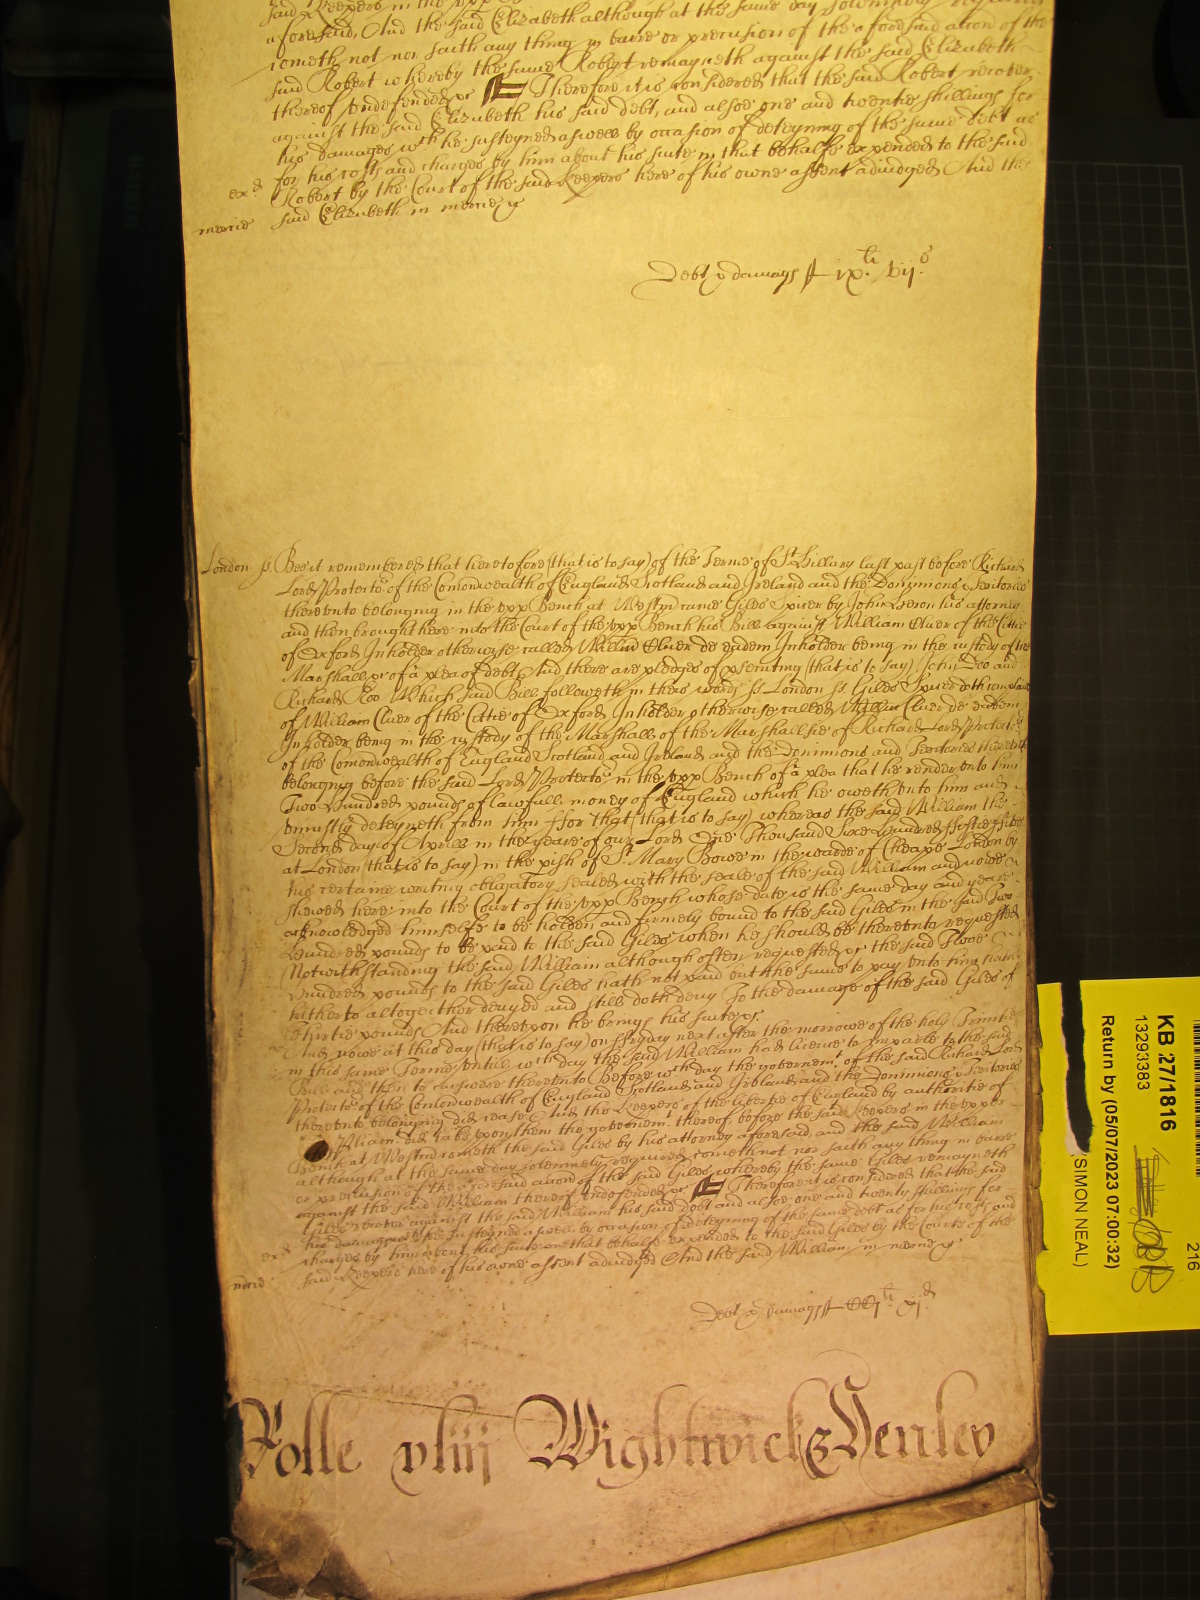 said Keepers in the upp
aforesaid, And the said Elizabeth although at the same day solemnely required
cometh not nor saith any thing in barre or preclusion of the aforesaid accion of the
said Robert whereby the same Robert remayneth against the said Elizabeth
thereof undefended &c Therefore it is considered that the said Robert recover
against the said Elizabeth his said debt, and alsoe one and twentie shillings for
his damages wch he susteyned aswell by occasion of deteyning of the same debt as
for his costs and charges by him about his suite in that behalfe expended to the said
Robert by the Court of the said Keepers here of his owne assent adiudged And the
said Elizabeth in mercie &c
mercie
Debt & damags
London ss. Bee it remembred that heretofore (that is to say) of the Terme of St. Hillary last past before Richard
Lord Protector of the Comonwealth of England Scotland and Ireland and the Dominions & Teritories
thereunto belonging in the upp Bench at Westmr came Giles Spicer by John Heron his attorney
and then brought here into the Court of the upp Bench his Bill against William Cluer of the Cittie
of Oxford Inholder otherwise called William Cluer de eadem Inholder being in the custody of the
Marshall &c of a plea of debt And there are pledges of psecuting (that is to say) John Doo and
Richard Roo Which said Bill followeth in theis words ss. London ss. Giles Spicer doth complaine
of William Cluer of the Cittie of Oxford Inholder otherwise called William Cluer de eadem
Inholder being in the custody of the Marshall of the Marshallsie of Richard Lord Protector
of the Comonwealth of England Scotland and Ireland and the Dominions and Teritories thereunto
belonging before the said Lord Protector in the upp Bench of a plea that he render unto him
Two Hundred pounds of lawfull money of England which he oweth unto him and
uniustly deteyneth from him ffor that (that is to say) whereas the said William the
Second day of Aprill in the yeare of our Lord One Thousand Sixe Hundred ffiftie
at London (that is to say) in the pish of St. Mary Bowe in the warde of Cheape London by
his certaine writing obligatory sealed with the seale of the said William and nowe
shewed here into the Court of the upp Bench whose date is the same day and yeare
acknowledged himselfe to be holden and firmely bound to the said Giles in the said Two
Hundred pounds to be paid to the said Giles when he should be thereunto requested
Notwithstanding the said William although often requested &c the said Twoe
Hundred pounds to the said Giles hath not paid but the same to pay unto him
hitherto altogeather denyed and still doth deny To the damage of the said Giles of
Thirtie pounds And thereupon he brings his suite &c.
And nowe at this day (that is to say) on ffryday next after the morrowe of the holy Trinitie
in this same Terme untill wch day the said William had licence to imparle to the said
Bill and then to answere thereunto Before wch day the governemt of the said Richard Lord
Protector of the Comonwealth of England Scotland and Ireland and the Dominions & Teritories
thereunto belonging did cease And the Keepers of the libertie of England by authoritie of
Parliamt did take upon them the governemt thereof before the said Keepers in the upper
Bench at Westmr cometh the said Giles by his attorney aforesaid, and the said William
although at the same day solemnely required cometh not nor saith any thing in barre
or preclusion of the aforesaid accion of the said Giles whereby the same Giles remayneth
against the said William thereof undefended &c Therefore it is considered that the said
Giles recover against the said William his said debt and alsoe one and twenty shillings for
his damags wch he susteyned aswell by occasion of deteyning of the same debt as for his costs and
charges by him about his suite in that behalfe expended to the said Giles by the Courte of the
said Keepers here of his owne assent adiudged And the said William in mercie &c
mcie
Debt & damags
Rolle xliij Wightwick & Henley
KB 27/1816
13293383
Return by (05/07/2023 07:00:32)
SIMON NEAL)
216